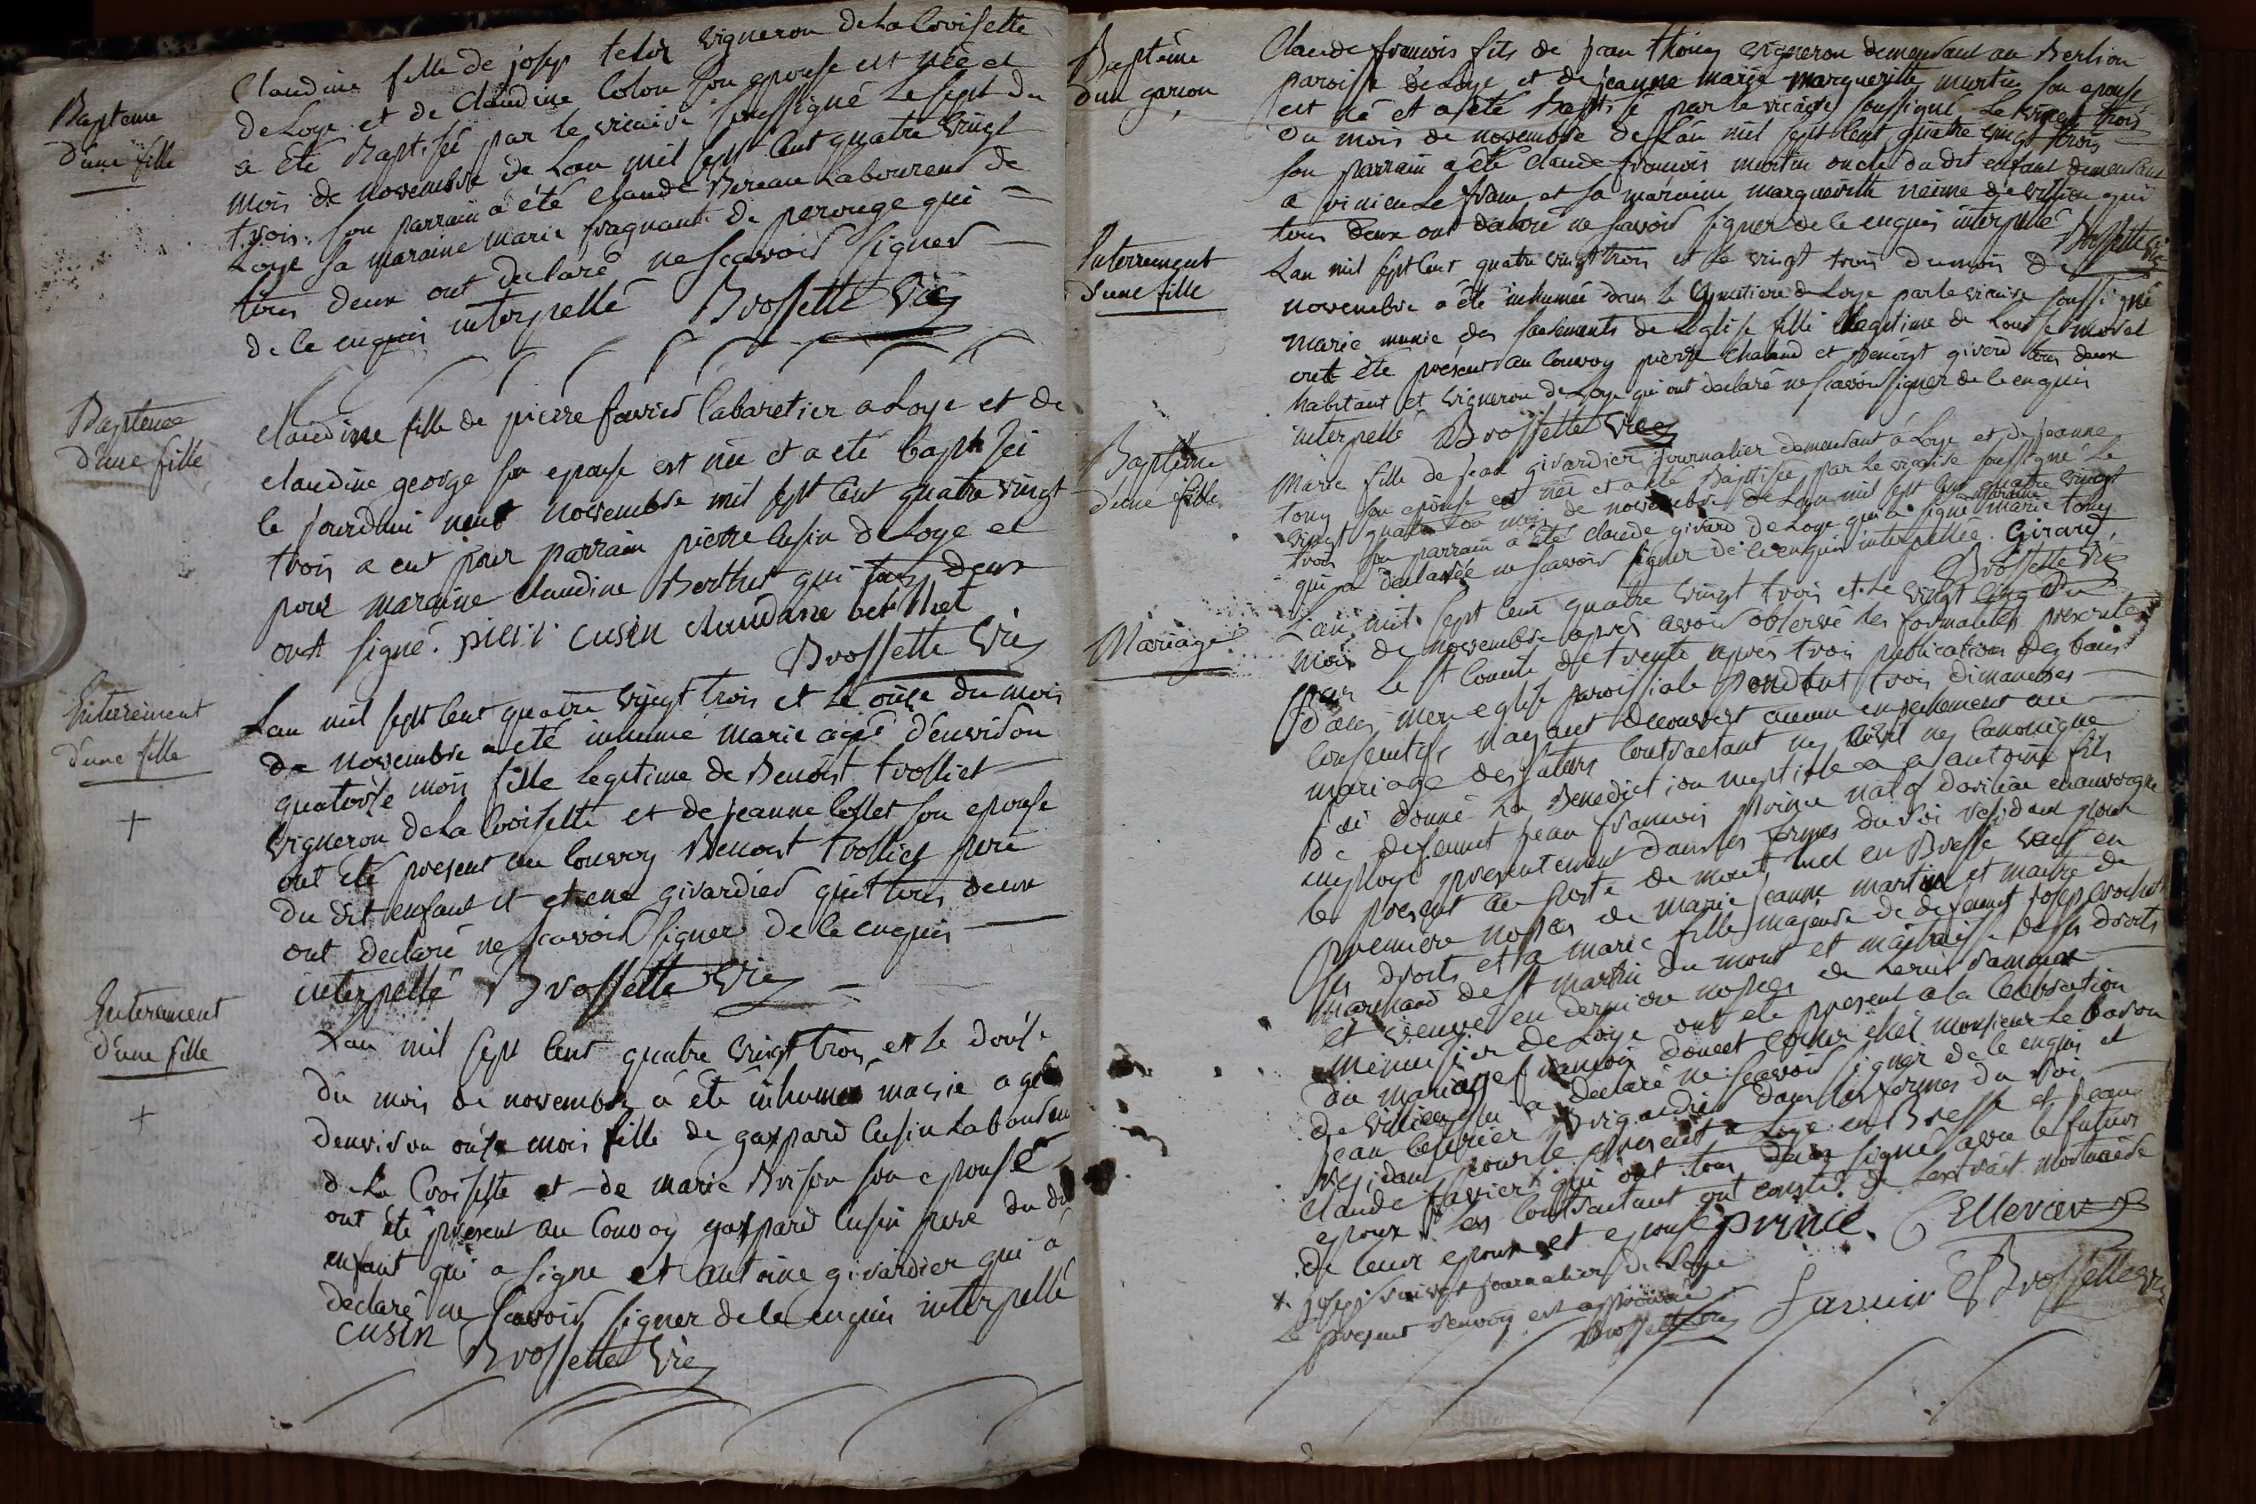 Bapteme
d'une fille
Claudine fille de josep vigneron de La Croisette
de Loye et de Claudine Colon son epouse est née et
a été Baptisée par le vicaire soussigné Le sept du
mois de novembre de Lan mil sept cent quatre vingt
trois. son parrain a été Claude Laboureur de
Loye sa maraine marie fragnant de perouge qui
tous deux ont declaré ne scavoir signer
de ce enquis interpellé Brossette Vic
Bapteme
d'une fille
claudine fille de pierre favier Cabaretier a Loye et de
claudine george son epouse est née et a eté
le jourdhui neuf novembre mil sept cent quatre vingt
trois a eut pour parrain pierre Cusin de Loye et
pour maraine claudine Berthet qui tous deux
ont signé. cusin berthet
Brossette Vic
Enterrement
d'une fille
Lan mil sept cent quatre vingt trois et le onze du mois
de novembre a eté inhumé marie agé d'environ
quatorze mois fille legitime de Benoist trolliet
vigneron de La Croisette et de jeanne Collet son epouse
ont été present au Convoy Benoist trolliet pere
du dit enfant et etiene givardier qui tous deux
ont declaré ne scavoir signer de ce enquis
interpellé Brossette Vic
Enterement
d'une fille
Lan mil sept cent quatre vingt trois et le douse
du mois de novembre a été inhumé marie agé
denviron onse mois fille de gaspard Cusin Laboureur
de La Croisette et de marie Brison son epouse
ont été present au Convoy gaspard Cusin pere du dit
enfant qui a signe et antoine givardier qui a
declaré ne scavoir signer de ce enquis interpellé
cusin
Brossette Vic
Bapteme
d'un garcon
Claude francois fils de jean thoiny vigneron demeurant au Berlion
paroisse de Loye et de jeanne marie margueritte martin son epouse
est né et a été baptisé par le vicaire soussigné Le vingt trois
du mois de novembre de lan mil sept cent quatre vingt trois
son parrain a été Claude francois martin oncle du dit enfant demeurant
a et sa maraine marguerite de qui
tous deux ont declaré ne scavoir signer de ce enquis interpellé
Brossette Vic
Enterrement
d'une fille
Lan mil sept cent quatre vingt trois et le vingt trois du mois de
novembre a été inhumée dans le Cymetiere de Loye par le vicaire soussigné
marie munie des sacrements de Leglise fille illegitime de Louise morel
ont été present au Convoy pierre et Benoist giverd tous deux
habitant et vigneron de Loye qui ont declaré ne scavoir signer de ce enquis
interpellé Brossette Vic
Bapteme
d'une fille
Marie fille de jean givardier journalier demeurant á Loye et de jeanne
tony son epouse est née et a été Baptisée par le vicaire soussigné Le
vingt quatre du mois de novembre de Lan mil sept cent quatre vingt
trois son parrain a été claude givard de Loye qui a signé maraine marie tony
qui a declarée ne scavoir signer de ce enquis interpellée. Girard
Brossette Vic
Mariage
L'an mil sept cent quatre vingt trois et le vingt cinq du
mois de novembre apres avoir observé les formalités prescrites
par Le St Concile de trente apres trois publications des bans
dans mon eglise paroissiale pendant trois dimanches
Consecutifs n'ayant decouvert aucun empechement au
mariage des futurs Contractant ny civil ny Canonique
j'ai donné La Benediction nuptiale a antoine fils
de deffunct jean francois prince natif en auvergne
employé presentement dans les fermes du Roi residant pour
le present au poste de mont luel en Bresse veuf en
premiere nopces de marie jeanne martin et maitre de
ses droits et a marie fille majeure de deffunct josep
marchand de St martin du mont et maitresse de ses droits
et veuve en derniere nopces de
menuisier de Loye ont été present a la Celebration
du mariage francois doucet Cocher chés monsieur Le baron
de qui a declaré ne scavoir signer de ce enquis et
jean Brigardier dans les fermes du Roi
residant pour le present a Loye en Bresse et jean
claude favier × qui ont tous deux signé avec le futur
epoux Les Contractant ont consté de Lextrait mortuaire
de leur epoux et epouse prince. Ellevier
× josep journalier de Loye
Le present renvoy est approuvé
Brossette Vic favier Brossette Vic